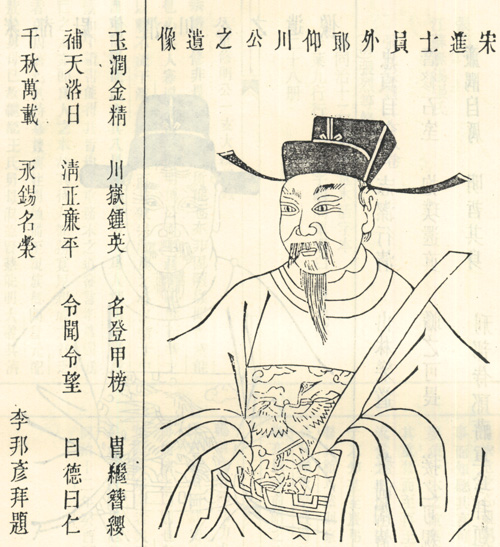 宋進士員外郎仰川公之遺像
玉潤金精 川嶽鍾英 名登甲榜 胄繼簪纓
補天浴日 清正廉平 令聞令望 曰德曰仁
千秋萬載 永錫名榮
李邦彥拜題